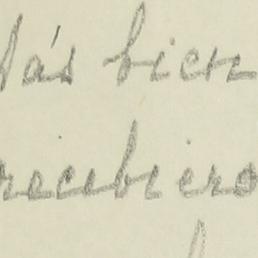 más bien
recibiero